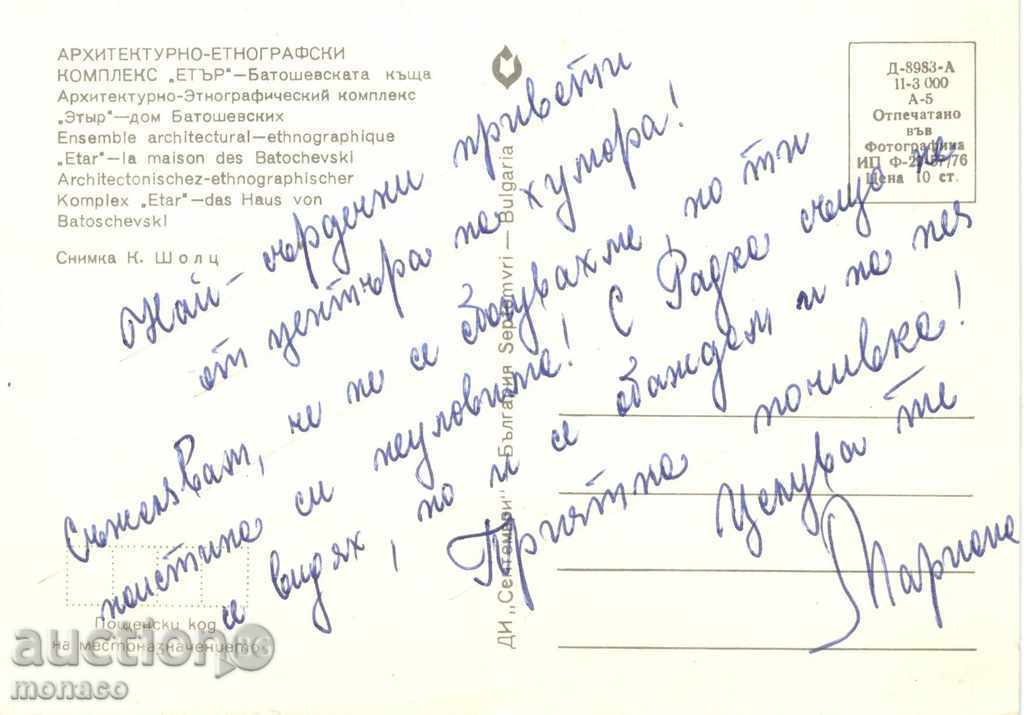 АРХИТЕКТУРНО-ЕТНОГРАФСКИ
КОМПЛЕКС „ЕТЪР"—Батошевската къща
Архитектурно-Этнографический комплекс
„Этыр"—дом Батошевских
Ensemble architectural—ethnographique
„Etar"—la maison des Batochevski
Architectonischez-ethnographischer
Komplex „Etar"—das Haus von
Batoschevski
Снимка К. Шолц
Д-8983-А
11-3 000
А-5
Отпечатано
във
Фотографика
ИП Ф-2
/76
Цена 10 ст.
Най-сърдечни привети
от центъра на хумора!
Съжелявам, че не се сбогувахме, но ти
наистина си неуловима! С Радка също не
се видях, но и се обаждам и на нея
Приятна почивка!
Целува те
Мариана
ДИ „Септември" — България Septemvri — Bulgaria
Пощенски код
на местоназначението
auction.bg
monaco